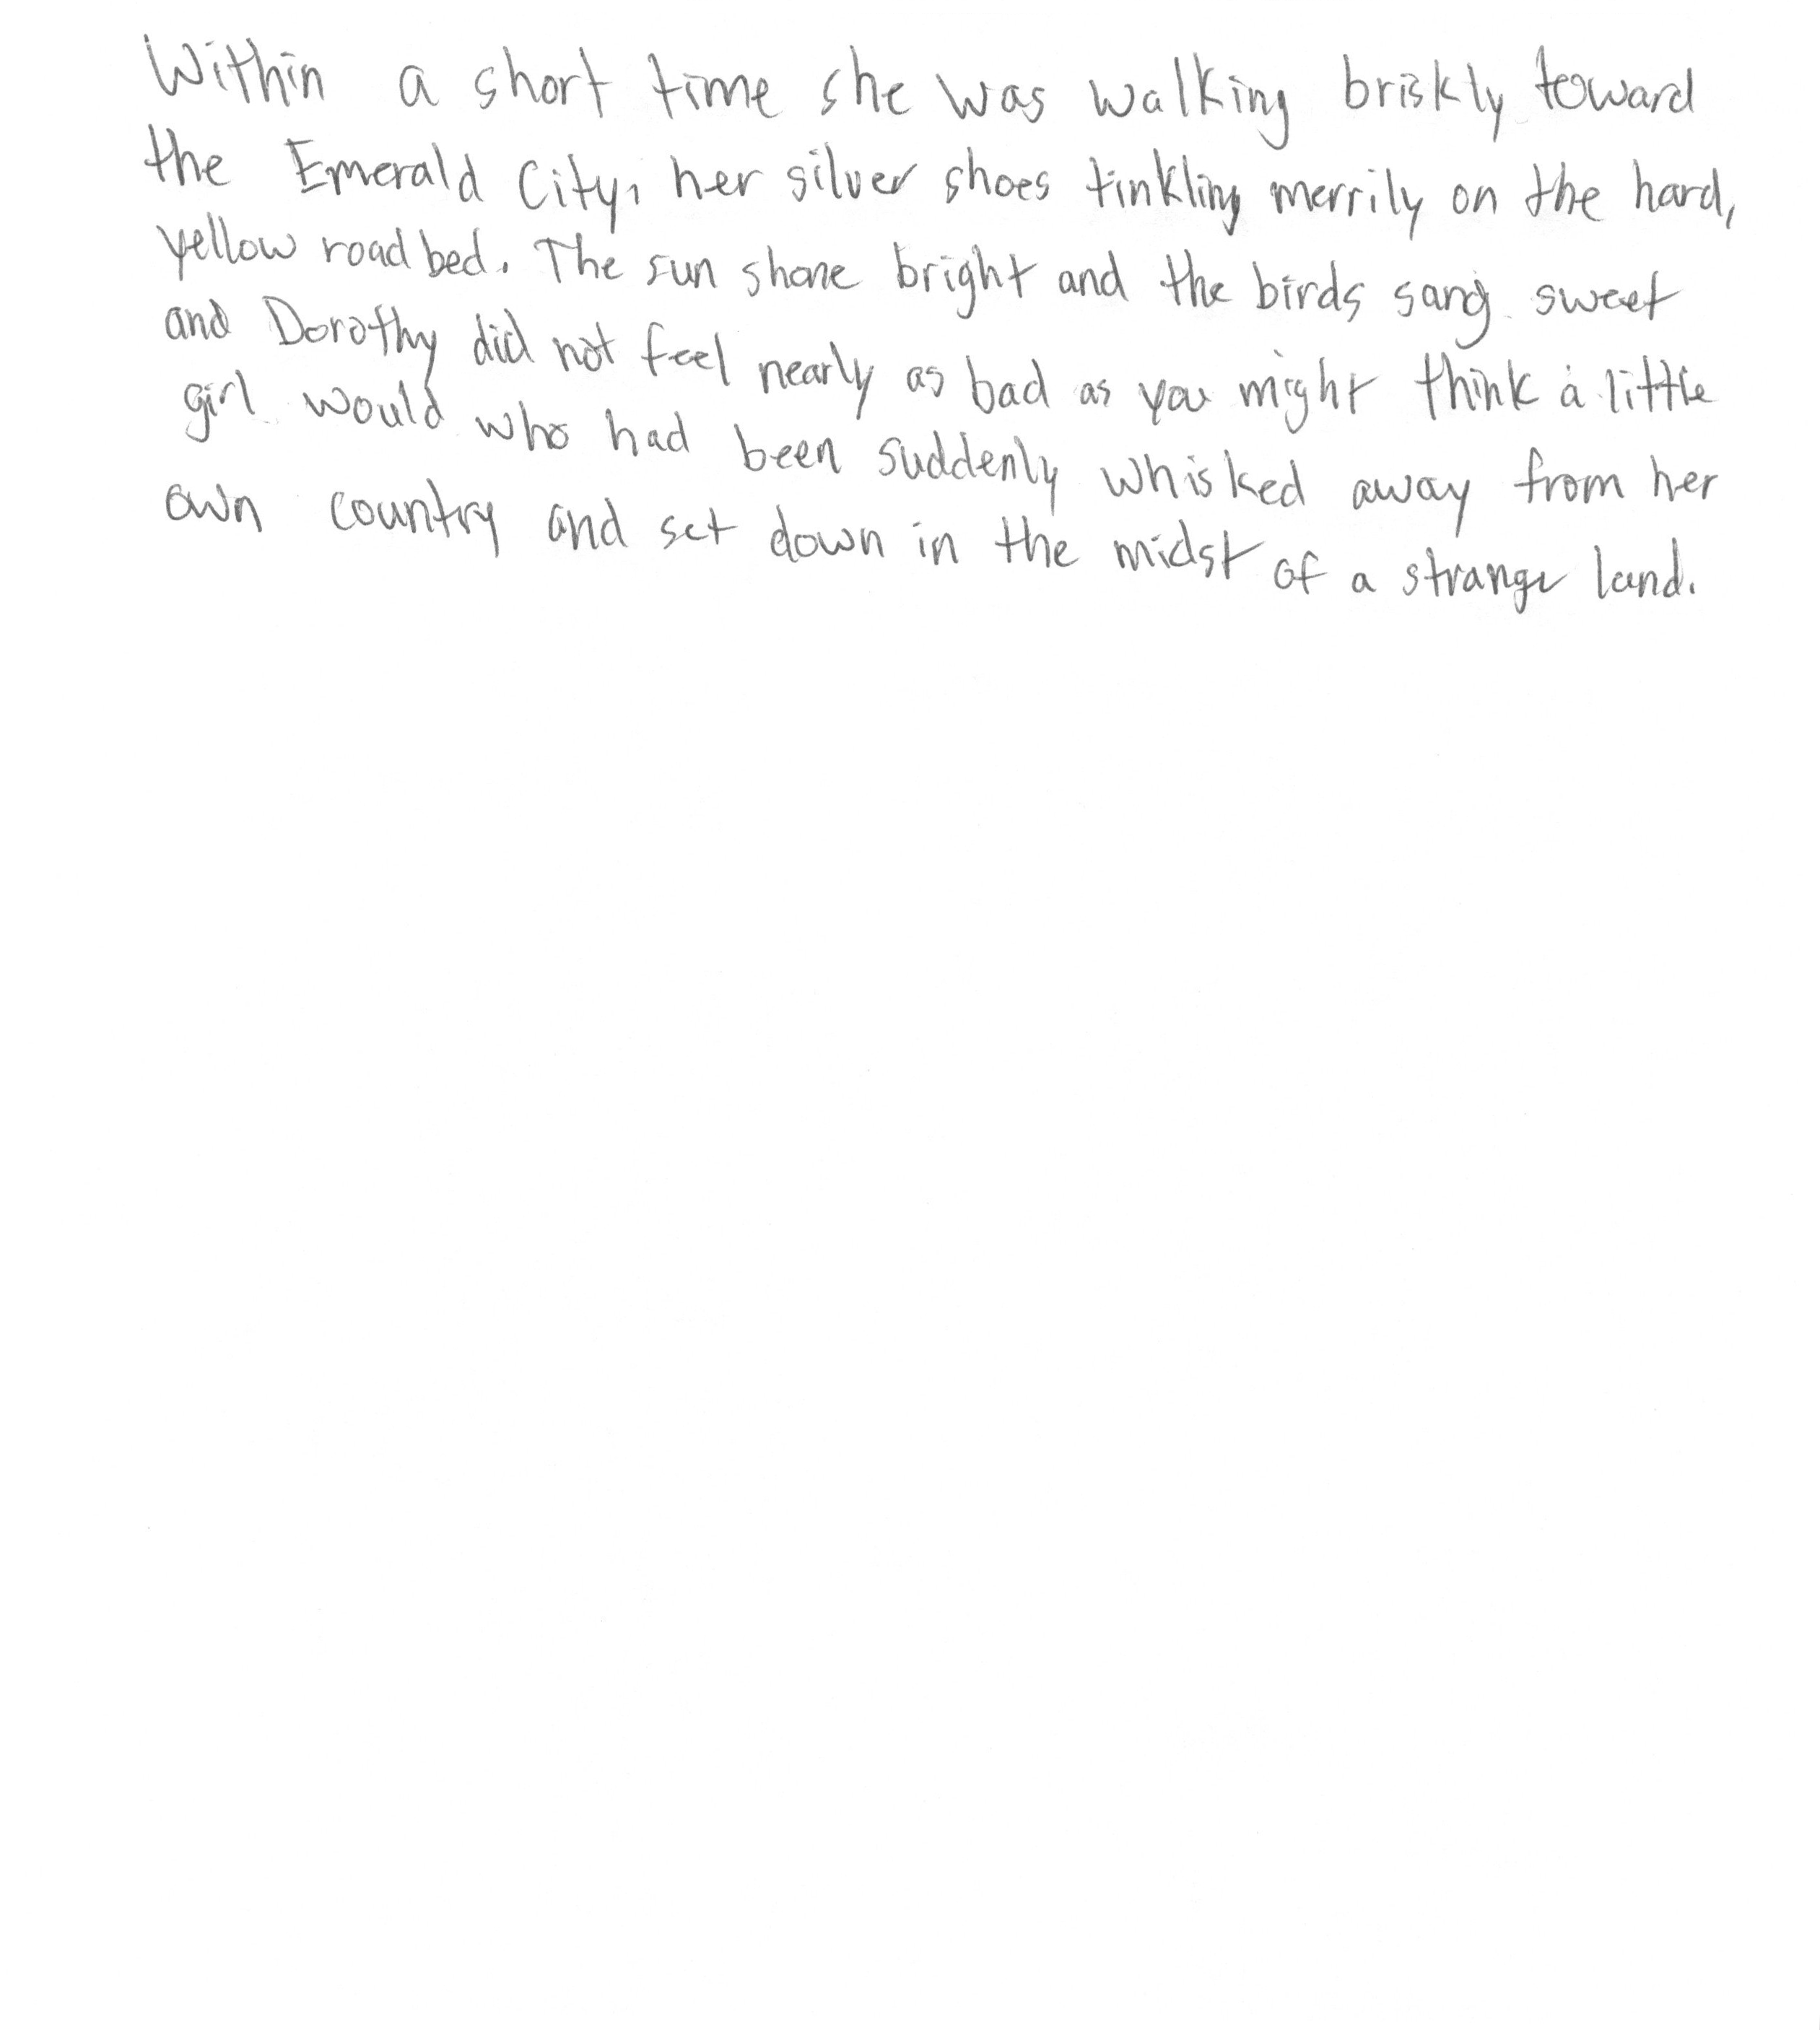 Within a short time she was walking briskly toward
the Emerald City, her silver shoes tinkling merrily on the hard,
yellow road bed. The sun shone bright and the birds sang sweet
and Dorothy did not feel nearly as bad as you might think a little
girl would who had been suddenly whisked away from her
own country and set down in the midst of a strange land.